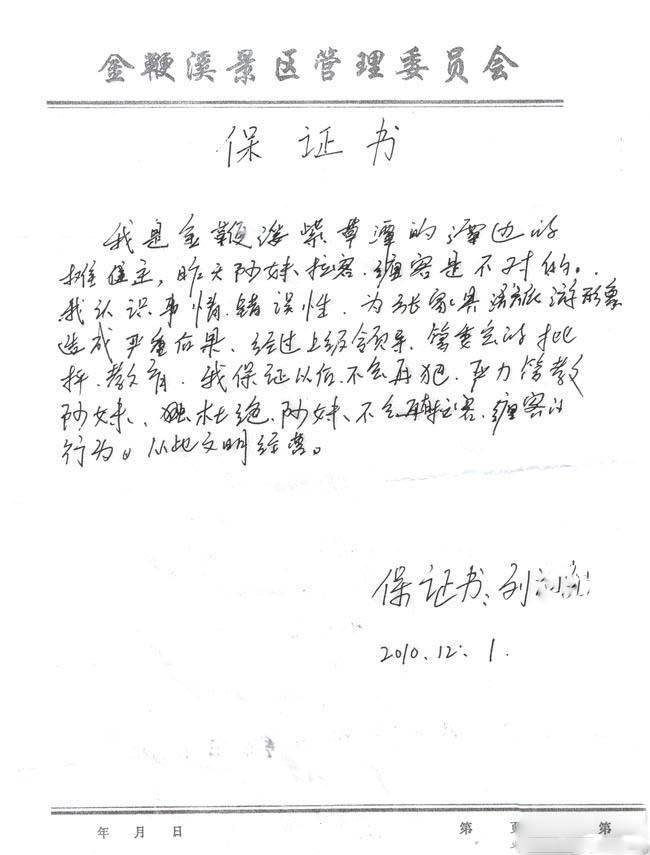 金鞭溪景区管理委员会
保证书
我是金鞭溪紫草潭的潭边的
摊位主，昨天阿妹拉客、缠客是不对的。
我认识事情错误性，为张家界旅游形象
造成严重后果、经过上级领导、管委会的批
评、教育、我保证以后不会再犯、严力管教
阿妹、杜绝阿妹、不会再拉客、缠客的
行为。从此文明经营。
保证书：刘
2010.12.1.
年 月 日
第 页
第